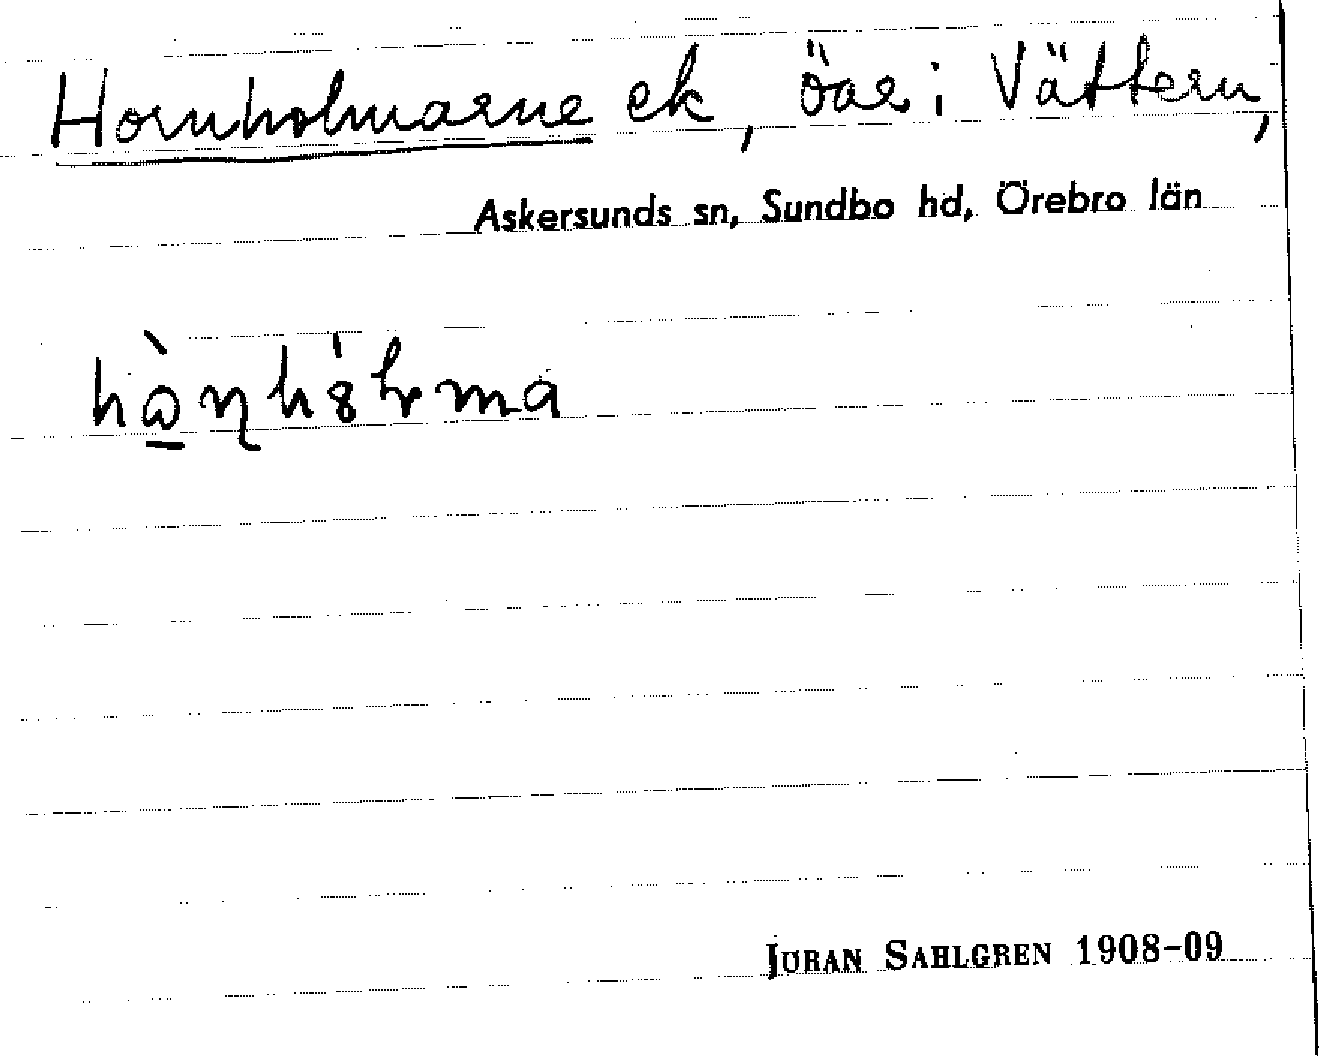 Hornholmarne ek, öar i Vättern,
Askersunds sn, Sundbo hd, Örebro län
JÖRAN SAHLGREN 1908-09